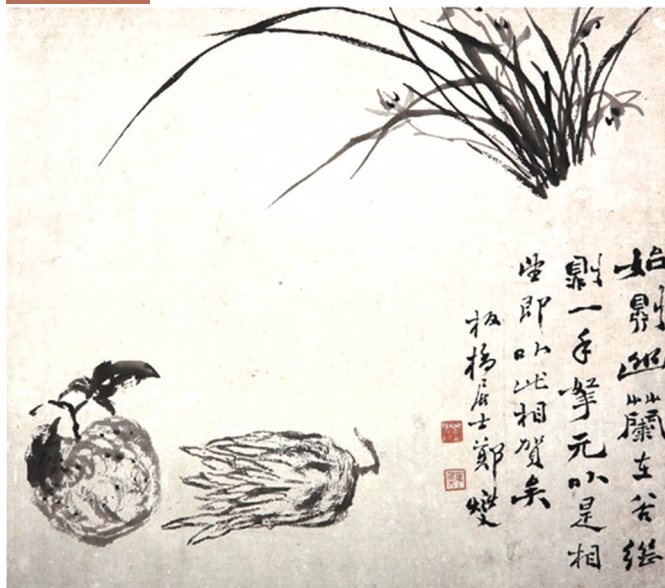 始則幽蘭在谷繼
則一手擎元以是相
望即以此相賀矣
板橋居士鄭燮